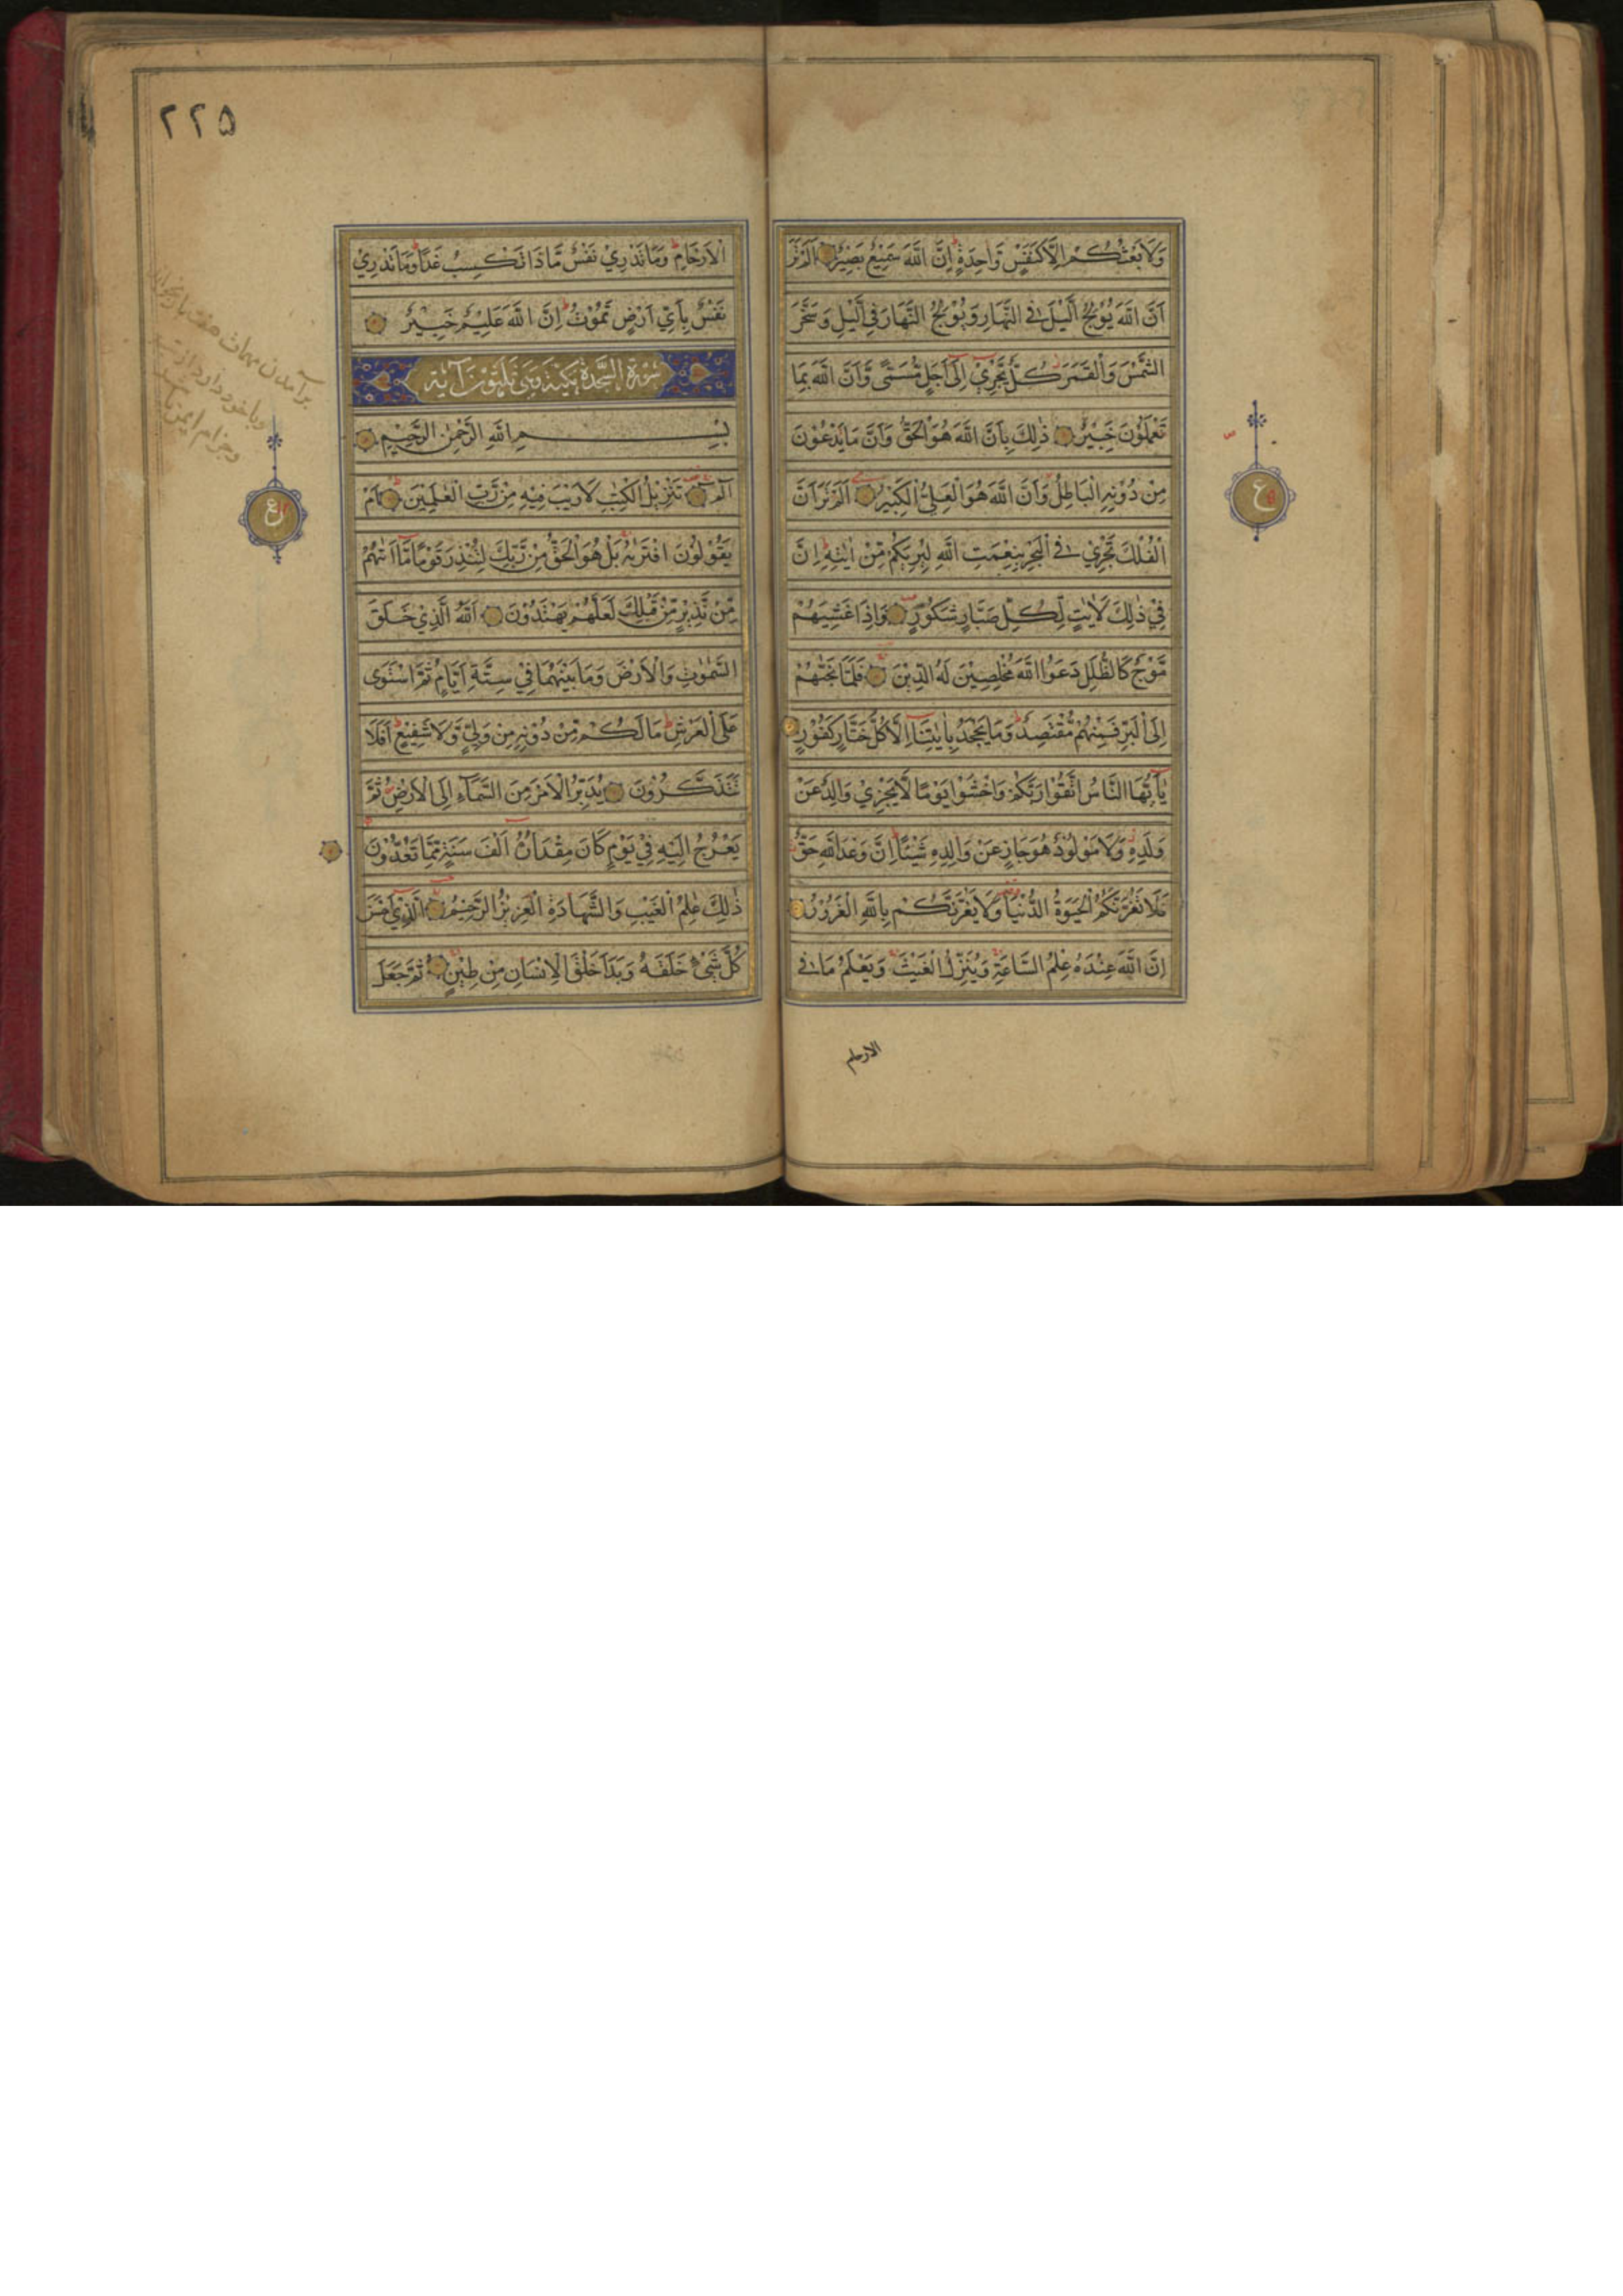 وَلَا بَعْثُكُمْ اِلَّا كَنَفْسٍ وَّاحِدَةٍ ط اِنَّ اللّٰهَ سَمِيْعٌ بَصِيْرٌ اَلَمْ تَرَ
اَنَّ اللّٰهَ يُوْلِجُ الَّيْلَ فِي النَّهَارِ وَيُوْلِجُ النَّهَارَ فِي الَّيْلِ وَسَخَّرَ
الشَّمْسَ وَالْقَمَرَ كُلٌّ يَّجْرِيْ اِلٰى اَجَلٍ مُّسَمًّى وَّاَنَّ اللّٰهَ بِمَا
تَعْمَلُوْنَ خَبِيْرٌ ذٰلِكَ بِاَنَّ اللّٰهَ هُوَ الْحَقُّ وَاَنَّ مَا يَدْعُوْنَ
مِنْ دُوْنِهِ الْبَاطِلُ وَاَنَّ اللّٰهَ هُوَ الْعَلِيُّ الْكَبِيْرُ اَلَمْ تَرَ اَنَّ
الْفُلْكَ تَجْرِيْ فِي الْبَحْرِ بِنِعْمَتِ اللّٰهِ لِيُرِيَكُمْ مِّنْ اٰيٰتِهٖ اِنَّ
فِيْ ذٰلِكَ لَاٰيٰتٍ لِّكُلِّ صَبَّارٍ شَكُوْرٍ وَاِذَا غَشِيَهُمْ
مَّوْجٌ كَالظُّلَلِ دَعَوُا اللّٰهَ مُخْلِصِيْنَ لَهُ الدِّيْنَ فَلَمَّا نَجّٰهُمْ
اِلَى الْبَرِّ فَمِنْهُمْ مُّقْتَصِدٌ ط وَمَا يَجْحَدُ بِاٰيٰتِنَا اِلَّا كُلُّ خَتَّارٍ كَفُوْرٍ
يٰاَيُّهَا النَّاسُ اتَّقُوْا رَبَّكُمْ وَاخْشَوْا يَوْمًا لَّا يَجْزِيْ وَالِدٌ عَنْ
وَلَدِهٖ وَلَا مَوْلُوْدٌ هُوَ جَازٍ عَنْ وَالِدِهٖ شَيْئًا اِنَّ وَعْدَ اللّٰهِ حَقٌّ
فَلَا تَغُرَّنَّكُمُ الْحَيٰوةُ الدُّنْيَا وَلَا يَغُرَّنَّكُمْ بِاللّٰهِ الْغَرُوْرُ
اِنَّ اللّٰهَ عِنْدَهٗ عِلْمُ السَّاعَةِ وَيُنَزِّلُ الْغَيْثَ وَيَعْلَمُ مَا فِي
الارحام
ع
٢٢۵
الْاَرْحَامِ ط وَمَا تَدْرِيْ نَفْسٌ مَّاذَا تَكْسِبُ غَدًا وَمَا تَدْرِيْ
نَفْسٌ بِاَيِّ اَرْضٍ تَمُوْتُ ط اِنَّ اللّٰهَ عَلِيْمٌ خَبِيْرٌ
سورة السجدة مكية وهي ثلثون آية
بِسْمِ اللّٰهِ الرَّحْمٰنِ الرَّحِيْمِ
الٓمٓ تَنْزِيْلُ الْكِتٰبِ لَا رَيْبَ فِيْهِ مِنْ رَّبِّ الْعٰلَمِيْنَ اَمْ
يَقُوْلُوْنَ افْتَرٰىهُ بَلْ هُوَ الْحَقُّ مِنْ رَّبِّكَ لِتُنْذِرَ قَوْمًا مَّا اَتٰهُمْ
مِّنْ نَّذِيْرٍ مِّنْ قَبْلِكَ لَعَلَّهُمْ يَهْتَدُوْنَ اَللّٰهُ الَّذِيْ خَلَقَ
السَّمٰوٰتِ وَالْاَرْضَ وَمَا بَيْنَهُمَا فِيْ سِتَّةِ اَيَّامٍ ثُمَّ اسْتَوٰى
عَلَى الْعَرْشِ ط مَا لَكُمْ مِّنْ دُوْنِهٖ مِنْ وَلِيٍّ وَّلَا شَفِيْعٍ ط اَفَلَا
تَتَذَكَّرُوْنَ يُدَبِّرُ الْاَمْرَ مِنَ السَّمَآءِ اِلَى الْاَرْضِ ثُمَّ
يَعْرُجُ اِلَيْهِ فِيْ يَوْمٍ كَانَ مِقْدَارُهٗ اَلْفَ سَنَةٍ مِّمَّا تَعُدُّوْنَ
ذٰلِكَ عٰلِمُ الْغَيْبِ وَالشَّهَادَةِ الْعَزِيْزُ الرَّحِيْمُ الَّذِيْ اَحْسَنَ
كُلَّ شَيْءٍ خَلَقَهٗ وَبَدَاَ خَلْقَ الْاِنْسَانِ مِنْ طِيْنٍ ثُمَّ جَعَلَ
ع
برآمدن مهمات هفت بار بخواند
وباخود دارد از